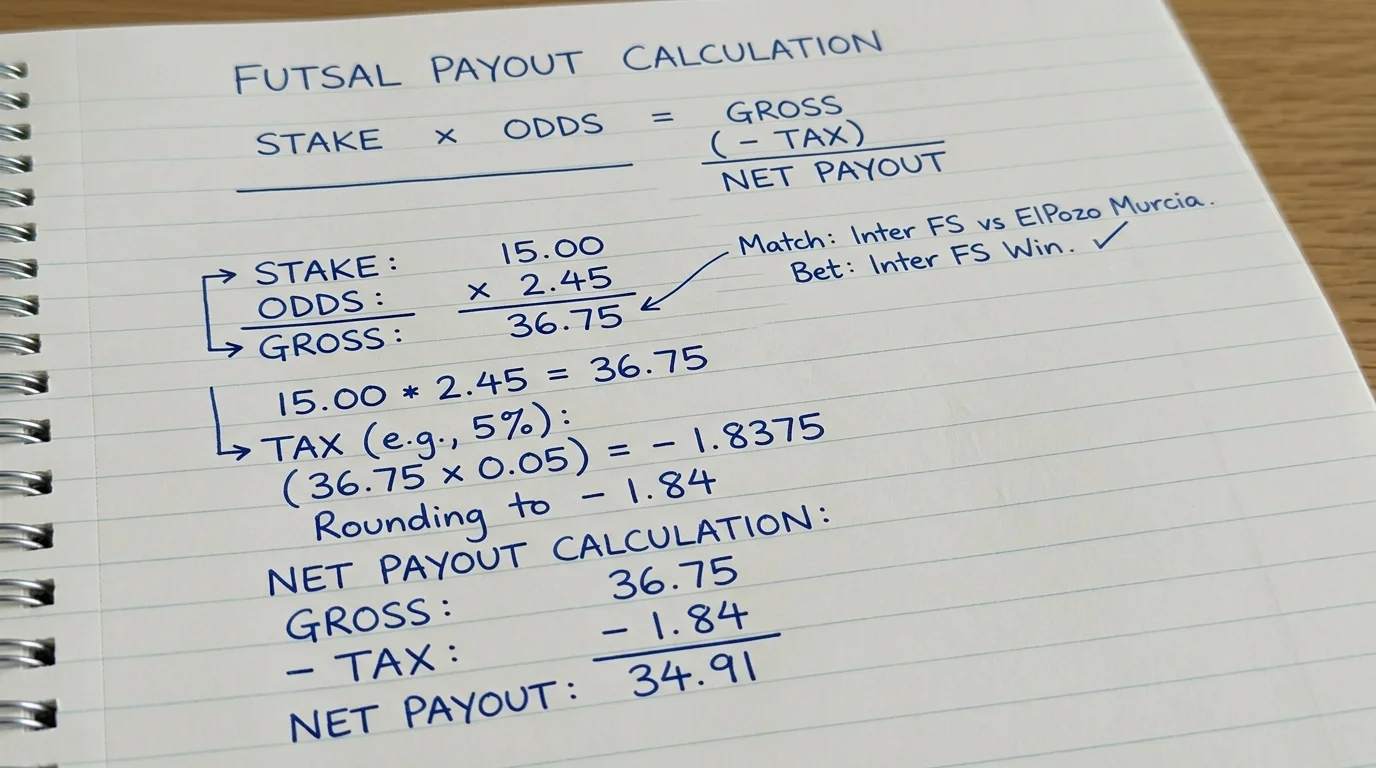 FUTSAL PAYOUT CALCULATION
STAKE × ODDS = GROSS
(- TAX)
NET PAYOUT
Match: Inter FS vs ElPozo Murcia.
Bet: Inter FS Win. ✓
STAKE: 15.00
ODDS: × 2.45
GROSS: 36.75
15.00 * 2.45 = 36.75
TAX (e.g., 5%):
(36.75 × 0.05) = - 1.8375
Rounding to - 1.84
NET PAYOUT CALCULATION:
GROSS: 36.75
- TAX: - 1.84
NET PAYOUT: 34.91